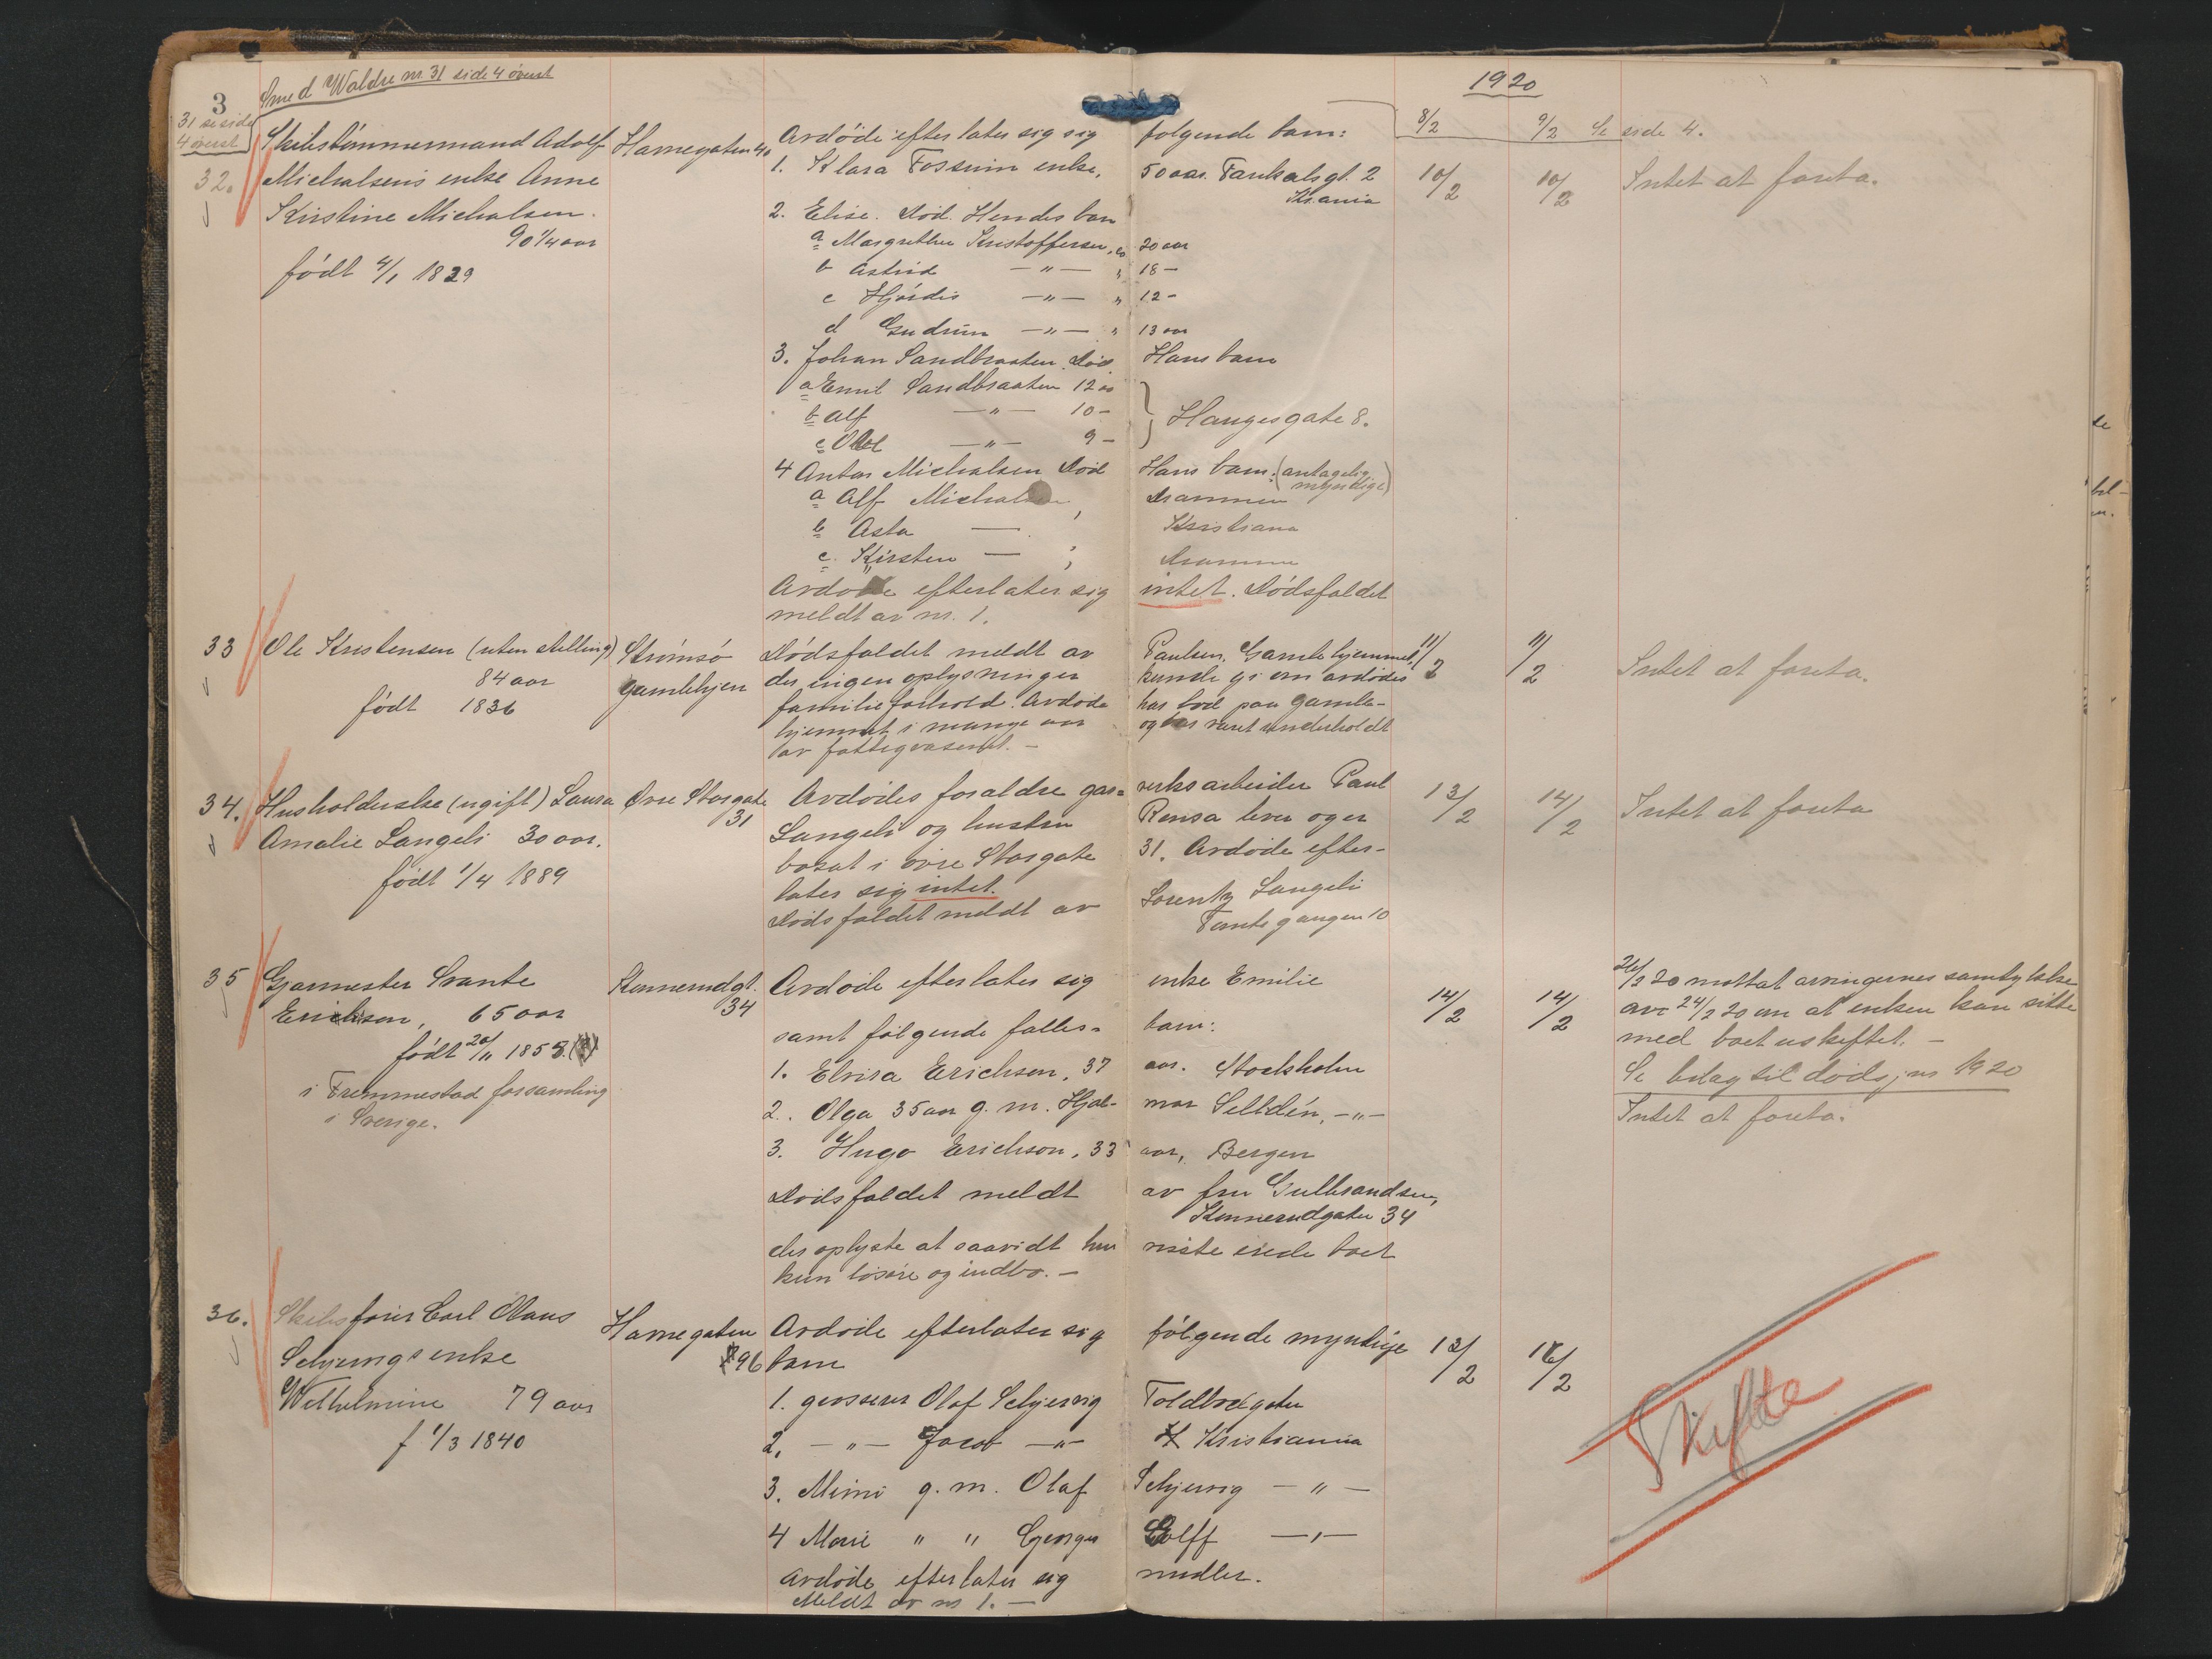 3
Smed Waldre nr 31 side 4 øverst
1920
31 se side
4 øverst
8/2
9/2 Se side 4.
32.
Skibstømmermand Adolf
Michalsens enke Anne
Kirstine Michalsen.
90 1/4 aar
født 4/1 1829
Havnegaten 40
Avdøde efterlater sig sig følgende barn:
1. Klara Fossum enke, 50 aar. Kr.ania
2. Elise. Død. Hendes barn
a Margrethe Kristoffersen, ca 20 aar
b Astrid —"— " 18 —
c Hjørdis —"— " 12 -
d Gudrun —"— " 13 aar
3. Johan Sandbraaten. Død. Hans barn
a Emil Sandbraaten 12 aar
b Alf —"— 10 -
c —"— 9 -
} Haugesgate 8.
4 Anton Michalsen Død Hans barn: (antagelig myndige)
a Alf Michalsen, Drammen
b Asta — Kristiana
c. Kirsten — , Drammen
Avdøde efterlater sig intet. Dødsfaldet
meldt av nr. 1.
10/2
10/2
Intet at foreta.
33
Ole Kristensen (uten stilling)
84 aar
født 1836
Strømsø
gamlehjem
Dødsfaldet meldt av Paulsen, Gamlehjemmet,
der ingen oplysninger kunde gi om avdødes
familieforhold. Avdøde har bod paa gamle-
hjemmet i mange aar og har været underholdt
av fattigvæsenet. —
11/2
11/2
Intet at foreta.
34.
Husholderske (ugift) Laura
Amalie Langeli 30 aar.
født 1/4 1889
Øvre Storgate
31
Avdødes forældre gas= verksarbeider Paul
Langeli og hustru Rensa lever og er
bosat i øvre Storgate 31. Avdøde efter-
later sig intet.
Dødsfaldet meldt av Lorentz Langeli
Tomtegangen 10
13/2
14/2
Intet at foreta
35
Garmester Svante
Erichson, 65 aar
født 20/11 1855.
i Fremmestad forsamling
i Sverige.
Konnerudgt.
34
Avdøde efterlater sig enke Emilie
samt følgende fælles= barn:
1. Elvira Erichson, 37 aar. Stockholm
2. Olga 35 aar g. m. Hjal- mar Selldén, —"—
3. Hugo Erichson, 33 aar, Bergen
Dødsfaldet meldt av fru Gulbrandsen,
Konnerudgaten 34
der oplyste at saavidt hun visste eiede boet
kun løsøre og indbo. —
14/2
14/2
26/2 20 mottat arvingernes samtykke
av 24/2 20 om at enken kan sitte
med boet uskiftet. —
Se bilag til dødsjnr 1920
Intet at foreta.
36.
Skibsfører Carl Olaus
Schjervigs enke
Wilhelmine 79 aar
f 1/3 1840
Havnegaten
96
Avdøde efterlater sig følgende myndige
barn
1. grosserer Olaf Schjervig Toldbodgaten
2. —"— Jacob —"— Kristiania
3. Mimi g. m. Olaf Schjervig —"—
4 Marie " " Georges Golff —"—
Avdøde efterlater sig midler.
Meldt av nr 1. —
13/2
16/2
Skifte